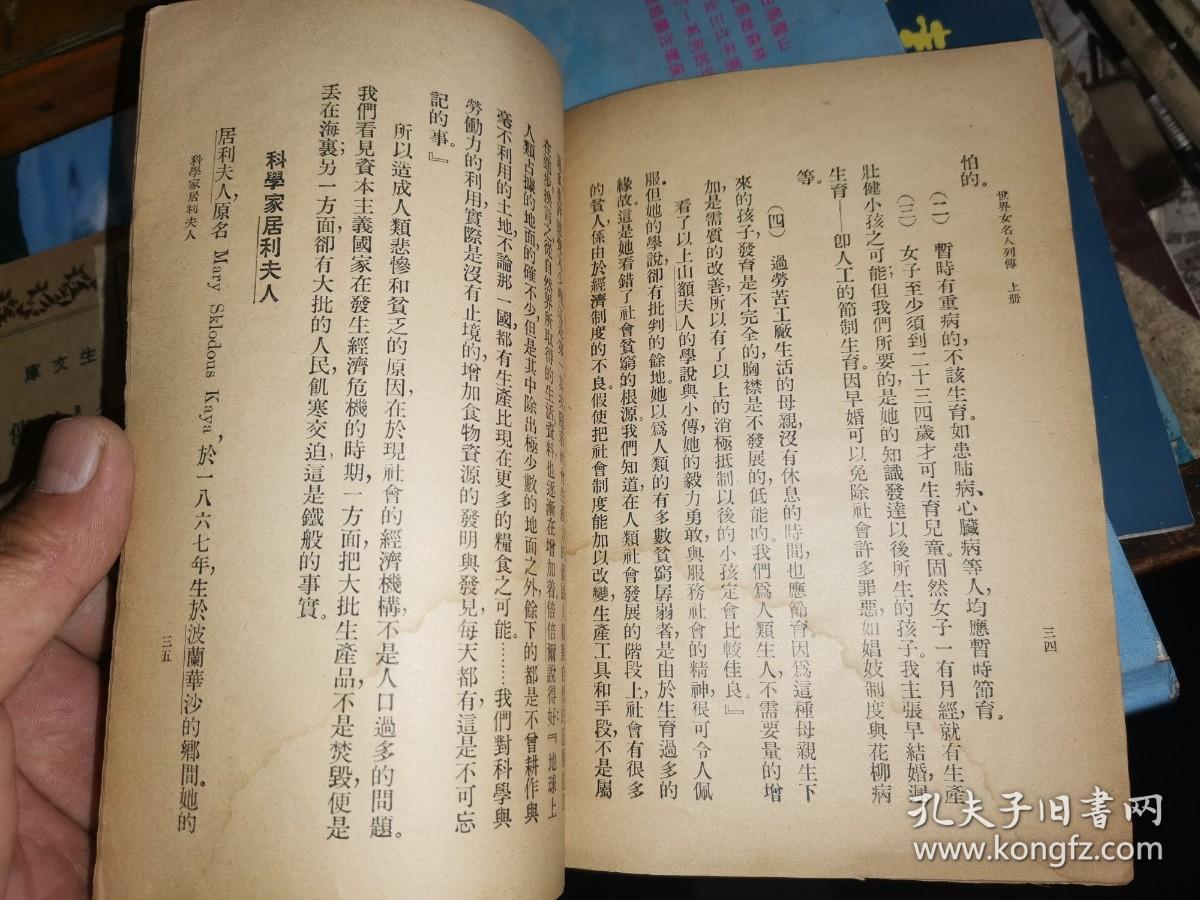 世界女名人列傳　上册
三四
怕的。
（二）　暫時有重病的，不該生育。如患肺病、心臟病等人，均應暫時節育。
（三）　女子至少須到二十三四歲才可生育兒童。固然女子一有月經，就有生產
壯健小孩之可能，但我們所要的是她的知識發達以後所生的孩子。我主張早結婚，遲
生育——卽人工的節制生育。因早婚可以免除社會許多罪惡，如娼妓制度與花柳病
等。
（四）　過勞苦工廠生活的母親，沒有休息的時間，也應節育。因爲這種母親生下
來的孩子，發育是不完全的，胸襟是不發展的，低能的。我們爲人類生人，不需要量的增
加，是需質的改善，所以有了以上的消極抵制，以後的小孩定會比較佳良。』
看了以上山額夫人的學說與小傳，她的毅力勇敢與服務社會的精神，很可令人佩
服。但她的學說，卻有批判的餘地。她以爲人類的有多數貧窮孱弱者，是由於生育過多的
緣故。這是她看錯了社會貧窮的根源。我們知道在人類社會發展的階段上，社會有很多
的貧人，係由於經濟制度的不良。假使把社會制度能加以改變，生產工具和手段，不是屬
從自然界所取得的生活資料，也逐漸在增加着。倍倍爾說得好：『地球上
人類占據的地面的確不少，但是其中除出極少數的地面之外，餘下的都是不曾耕作與
毫不利用的土地，不論那一國，都有生產比現在更多的糧食之可能。……我們對科學與
勞働力的利用，實際是沒有止境的，增加食物資源的發明與發見，每天都有，這是不可忘
記的事。』
所以造成人類悲慘和貧乏的原因，在於現社會的經濟機構，不是人口過多的問題。
我們看見資本主義國家在發生經濟危機的時期，一方面把大批生產品，不是焚毀，便是
丟在海裏；另一方面卻有大批的人民，飢寒交迫，這是鐵般的事實。
科學家居利夫人
居利夫人，原名 Mary Sklodous Kaya，於一八六七年，生於波蘭華沙的鄉間。她的
科學家居利夫人
三五
孔夫子旧书网
www.kongfz.com